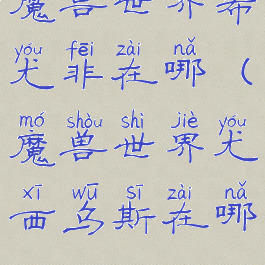 魔兽世界希
yóu fēi zài nǎ
尤非在哪(
mó shòu shì jiè yóu
魔兽世界尤
xī wū sī zài nǎ
西乌斯在哪